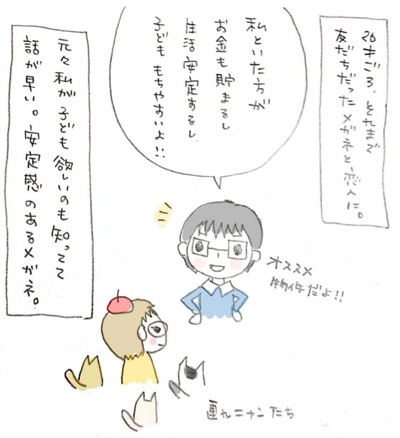 26才ごろ、それまで
友だちだったメガネと恋人に。
私といた方が
お金も貯まるし
生活安定するし
子どももちやすいよ!!
オススメ
物件だよ!!
元々私が子ども欲しいのも知ってて
話が早い。安定感のあるメガネ。
連れニャンたち